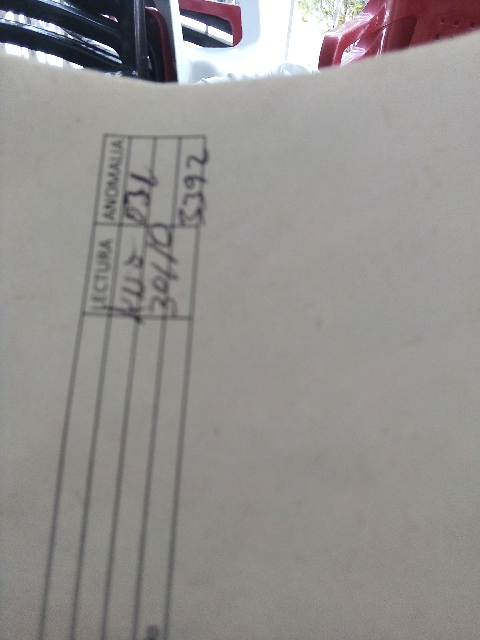 LECTURA ANOMALIA
036
30/10
3392